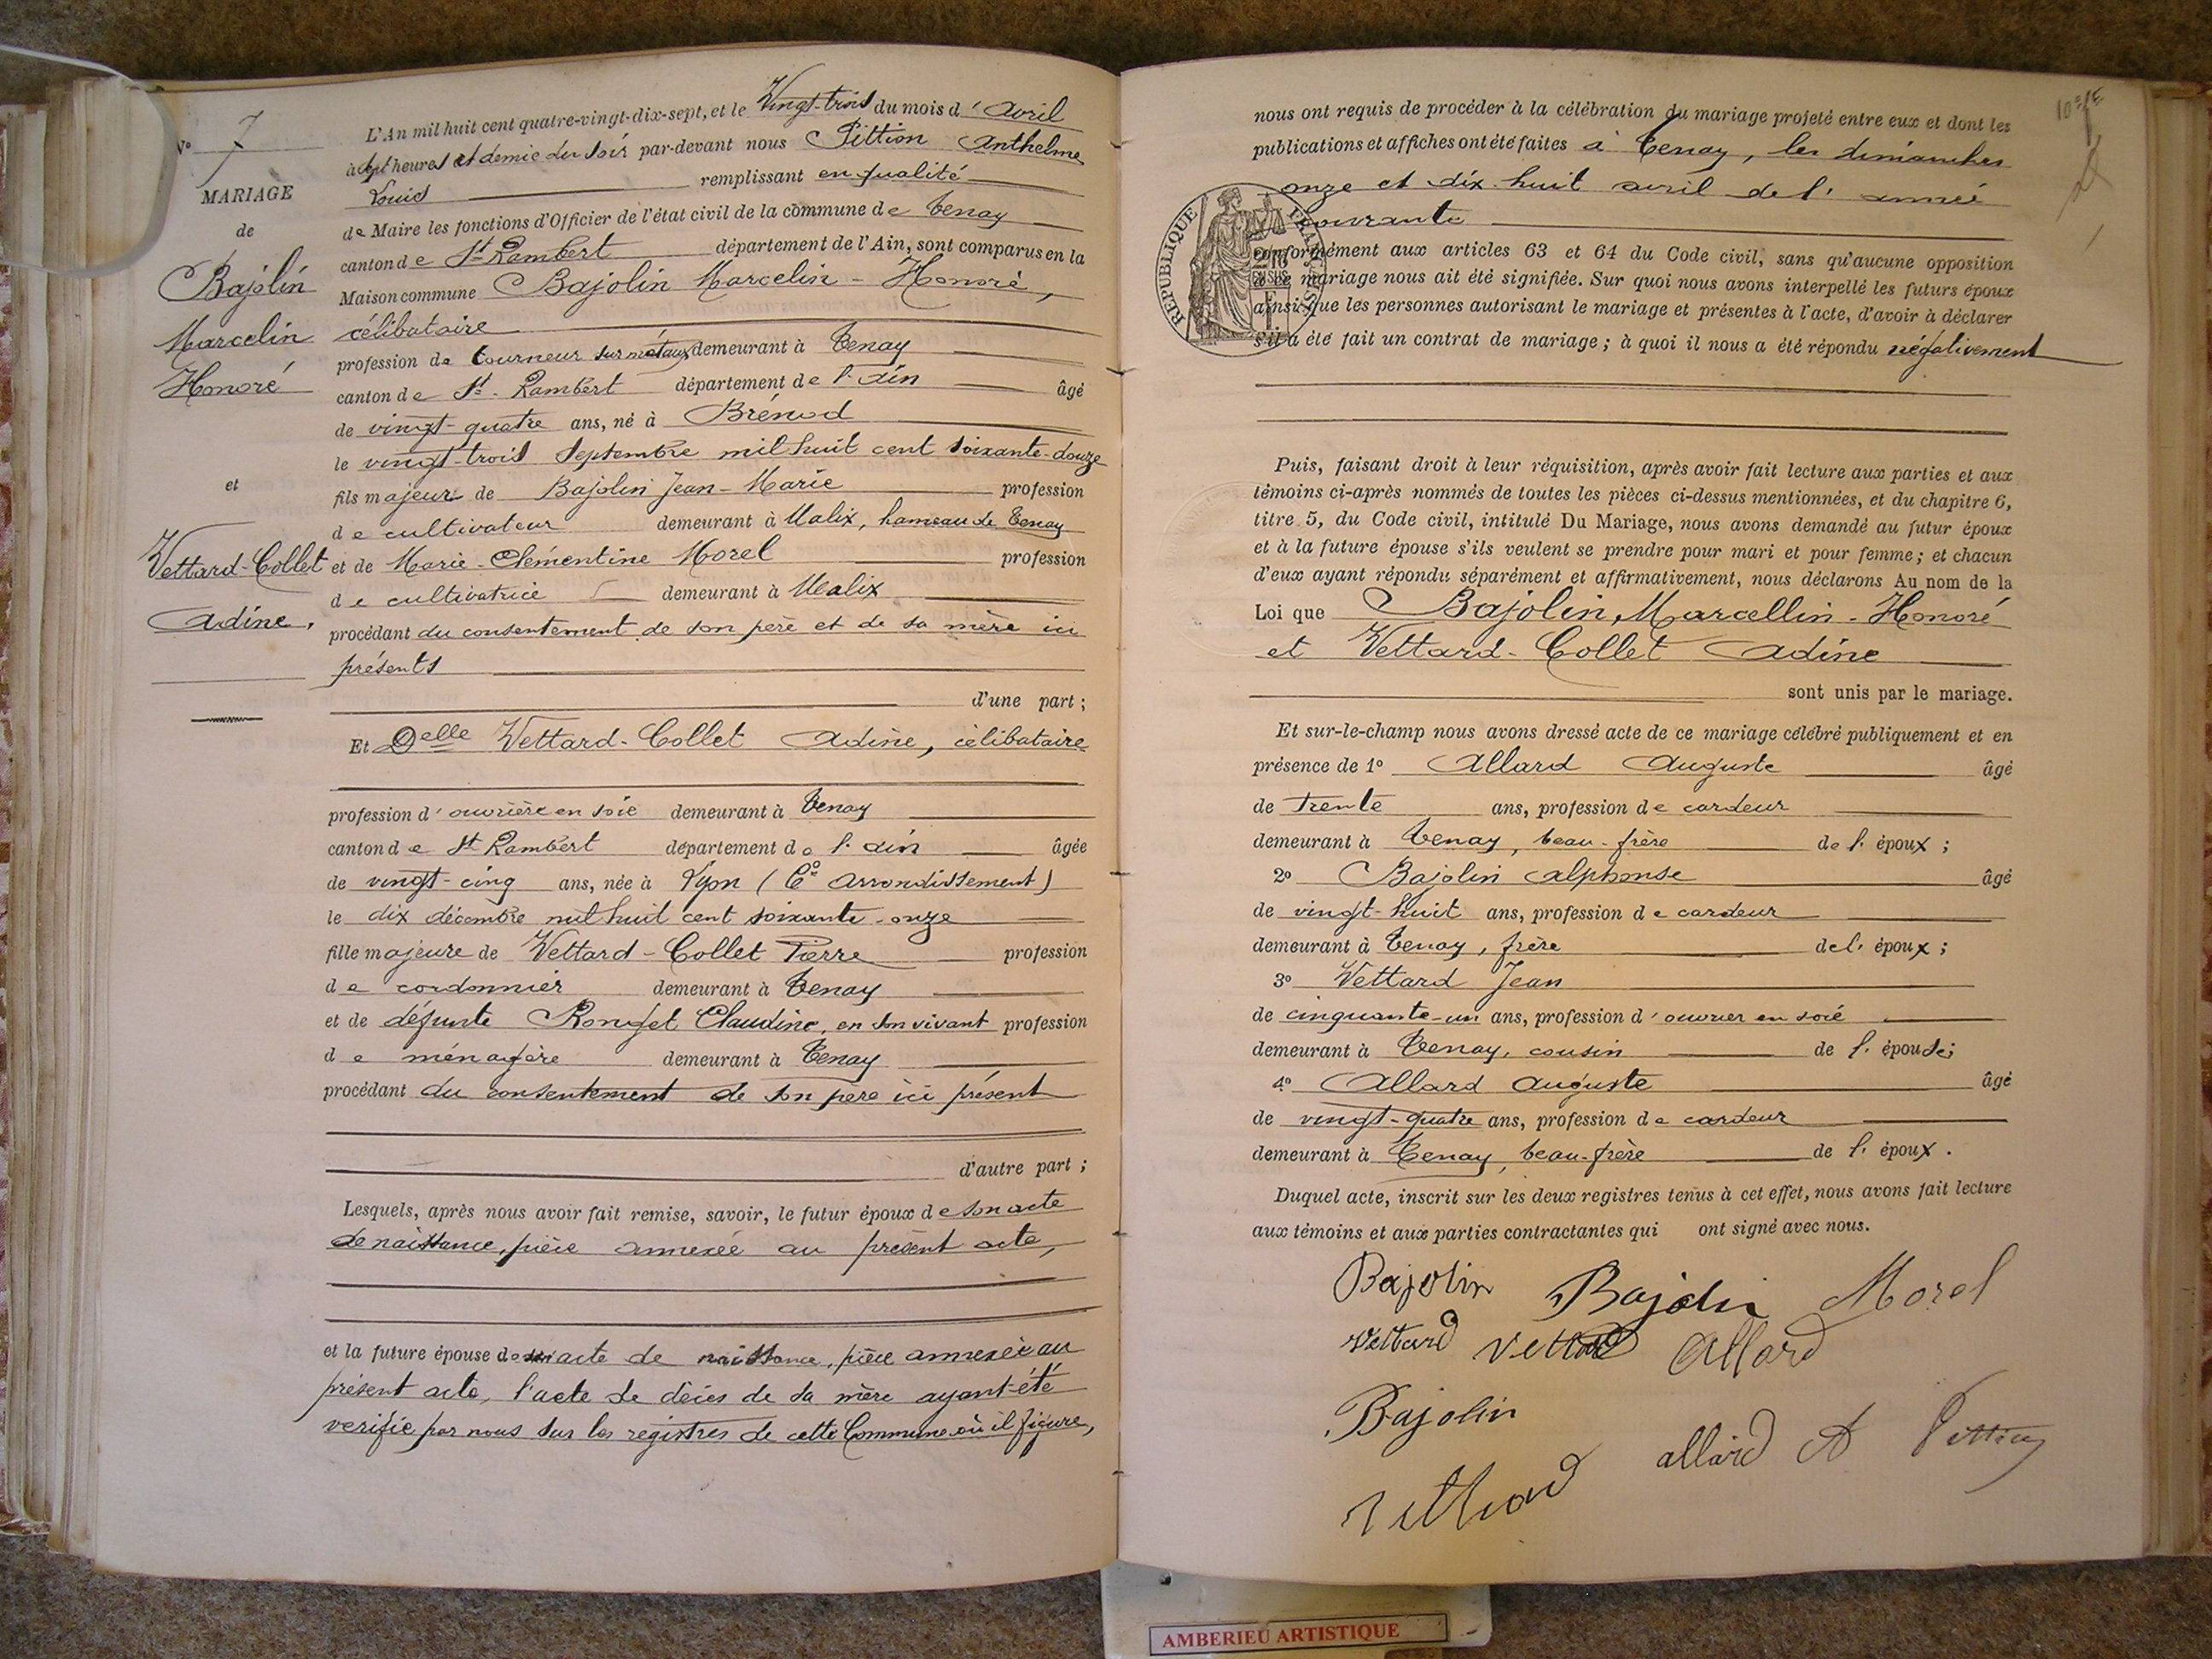 N° 7
MARIAGE
de
Bajolin
Marcelin
Honoré
et
Vettard-Collet
Adine,
L'An mil huit cent quatre-vingt-dix-sept, et le Vingt-trois du mois d'Avril
à sept heures et demie du soir par-devant nous Pittion Anthelme
Louis remplissant en qualité
de Maire les fonctions d'Officier de l'état civil de la commune de Tenay
canton de St Rambert département de l'Ain, sont comparus en la
Maison commune Bajolin Marcelin-Honoré,
célibataire
profession de tourneur sur métaux demeurant à Tenay
canton de St-Rambert département de l'Ain âgé
de vingt-quatre ans, né à Brénod
le vingt-trois Septembre mil huit cent soixante-douze
fils majeur de Bajolin Jean-Marie profession
de cultivateur demeurant à Malix, hameau de Tenay
et de Marie-Clémentine Morel profession
de cultivatrice demeurant à Malix
procédant du consentement de son père et de sa mère ici
présents
d'une part ;
Et Delle Vettard-Collet Adine, célibataire
profession d'ouvrière en soie demeurant à Tenay
canton de St Rambert département de l'Ain âgée
de vingt-cinq ans, née à Lyon ( arrondissement)
le dix décembre mil huit cent soixante-onze
fille majeure de Vettard-Collet Pierre profession
de cordonnier demeurant à Tenay
et de défunte Rouget Claudine, en son vivant profession
de ménagère demeurant à Tenay
procédant du consentement de son père ici présent
d'autre part ;
Lesquels, après nous avoir fait remise, savoir, le futur époux de son acte
de naissance, pièce annexée au présent acte,
et la future épouse de son acte de naissance, pièce annexée au
présent acte, l'acte de décès de sa mère ayant été
verifié par nous sur les registres de cette Commune où il figure,
nous ont requis de procéder à la célébration du mariage projeté entre eux et dont les
publications et affiches ont été faites à Tenay, les dimanches
onze et dix-huit avril de l'année
courante
conformément aux articles 63 et 64 du Code civil, sans qu'aucune opposition
à ce mariage nous ait été signifiée. Sur quoi nous avons interpellé les futurs époux
ainsi que les personnes autorisant le mariage et présentes à l'acte, d'avoir à déclarer
s'il a été fait un contrat de mariage ; à quoi il nous a été répondu négativement
RÉPUBLIQUE FRANÇAISE
Puis, faisant droit à leur réquisition, après avoir fait lecture aux parties et aux
témoins ci-après nommés de toutes les pièces ci-dessus mentionnées, et du chapitre 6,
titre 5, du Code civil, intitulé Du Mariage, nous avons demandé au futur époux
et à la future épouse s'ils veulent se prendre pour mari et pour femme ; et chacun
d'eux ayant répondu séparément et affirmativement, nous déclarons Au nom de la
Loi que Bajolin, Marcellin-Honoré
et Vettard-Collet Adine
sont unis par le mariage.
Et sur-le-champ nous avons dressé acte de ce mariage célébré publiquement et en
présence de 1° Allard Auguste âgé
de trente ans, profession de cardeur
demeurant à Tenay, beau-frère de l'époux ;
2° Bajolin Alphonse âgé
de vingt-huit ans, profession de cardeur
demeurant à Tenay, frère de l'époux ;
3° Vettard Jean
de cinquante-un ans, profession d'ouvrier en soie
demeurant à Tenay, cousin de l'épouse ;
4° Allard Auguste âgé
de vingt-quatre ans, profession de cardeur
demeurant à Tenay, beau-frère de l'époux.
Duquel acte, inscrit sur les deux registres tenus à cet effet, nous avons fait lecture
aux témoins et aux parties contractantes qui ont signé avec nous.
Bajolin Bajolin Morel
Vettard Vettard Allard
Bajolin
allard A Pittion
Vettard
AMBERIEU ARTISTIQUE